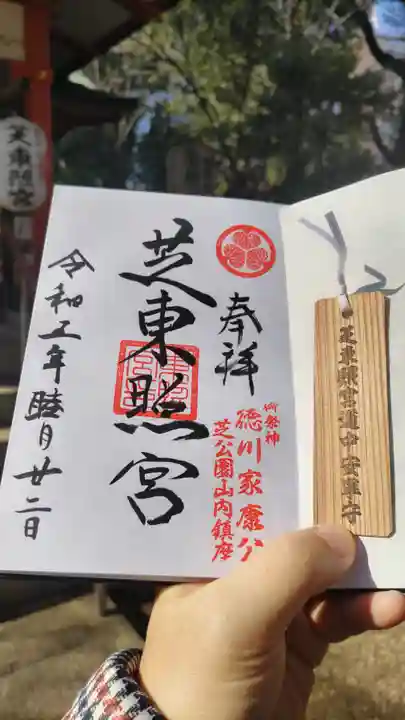 奉拝
御祭神
徳川家康公
芝公園山内鎮座
芝東照宮
令和五年睦月廿二日
芝東照宮道中安全守
芝東照宮